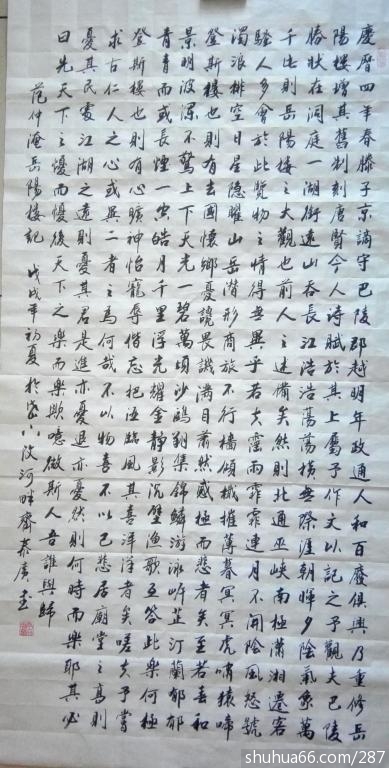 慶曆四年春滕子京謫守巴陵郡越明年政通人和百廢俱興乃重修岳
陽樓增其舊制刻唐賢今人詩賦於其上屬予作文以記之予觀夫巴陵
勝狀在洞庭一湖銜遠山吞長江浩浩蕩蕩橫無際涯朝暉夕陰氣象萬
千此則岳陽樓之大觀也前人之述備矣然則北通巫峽南極瀟湘遷客
騷人多會於此覽物之情得無異乎若夫霪雨霏霏連月不開陰風怒號
濁浪排空日星隱曜山岳潛形商旅不行檣傾楫摧薄暮冥冥虎嘯猿啼
登斯樓也則有去國懷鄉憂讒畏譏滿目蕭然感極而悲者矣至若春和
景明波瀾不驚上下天光一碧萬頃沙鷗翔集錦鱗游泳岸芷汀蘭郁郁
青青而或長煙一空皓月千里浮光耀金靜影沉璧漁歌互答此樂何極
登斯樓也則有心曠神怡寵辱偕忘把酒臨風其喜洋洋者矣嗟夫予嘗
求古仁人之心或異二者之為何哉不以物喜不以己悲居廟堂之高則
憂其民處江湖之遠則憂其君是進亦憂退亦憂然則何時而樂耶其必
曰先天下之憂而憂後天下之樂而樂歟噫微斯人吾誰與歸
范仲淹岳陽樓記 戊戌年初夏於汶河畔齊泰廣書
shuhua66.com/287